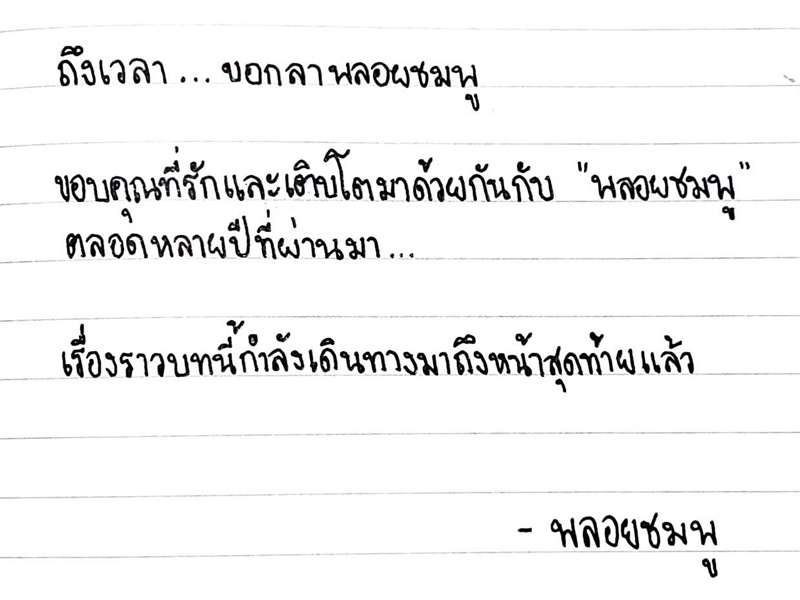 ถึงเวลา... บอกลาพลอยชมพู
ขอบคุณที่รักและเติบโตมาด้วยกันกับ "พลอยชมพู"
ตลอดหลายปีที่ผ่านมา...
เรื่องราวบทนี้กำลังเดินทางมาถึงหน้าสุดท้ายแล้ว
- พลอยชมพู